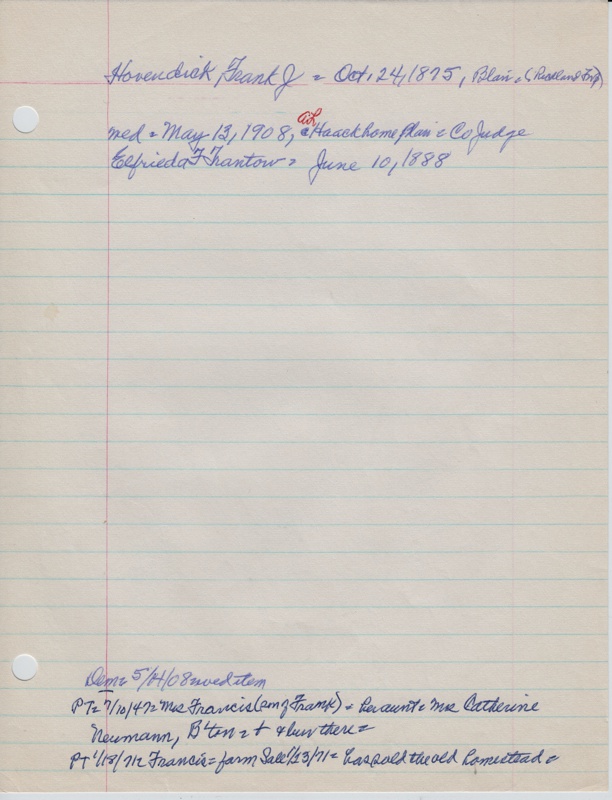 Hovendick, Frank J = Oct, 24, 1875, Blair = (Richland Twp)
AL
wed = May 13, 1908, @ Haack home Blair = Co Judge
Elfrieda F Frantow = June 10, 1888
Dem = 5/14/08 = wed item
PT = 7/10/47 = Mrs Francis (son of Frank) = her aunt = Mrs Catherine
Neumann, B'ton = + & bur there =
PT 1/18/71 = Francis = farm Sale 1/23/71 = has sold the old homestead =